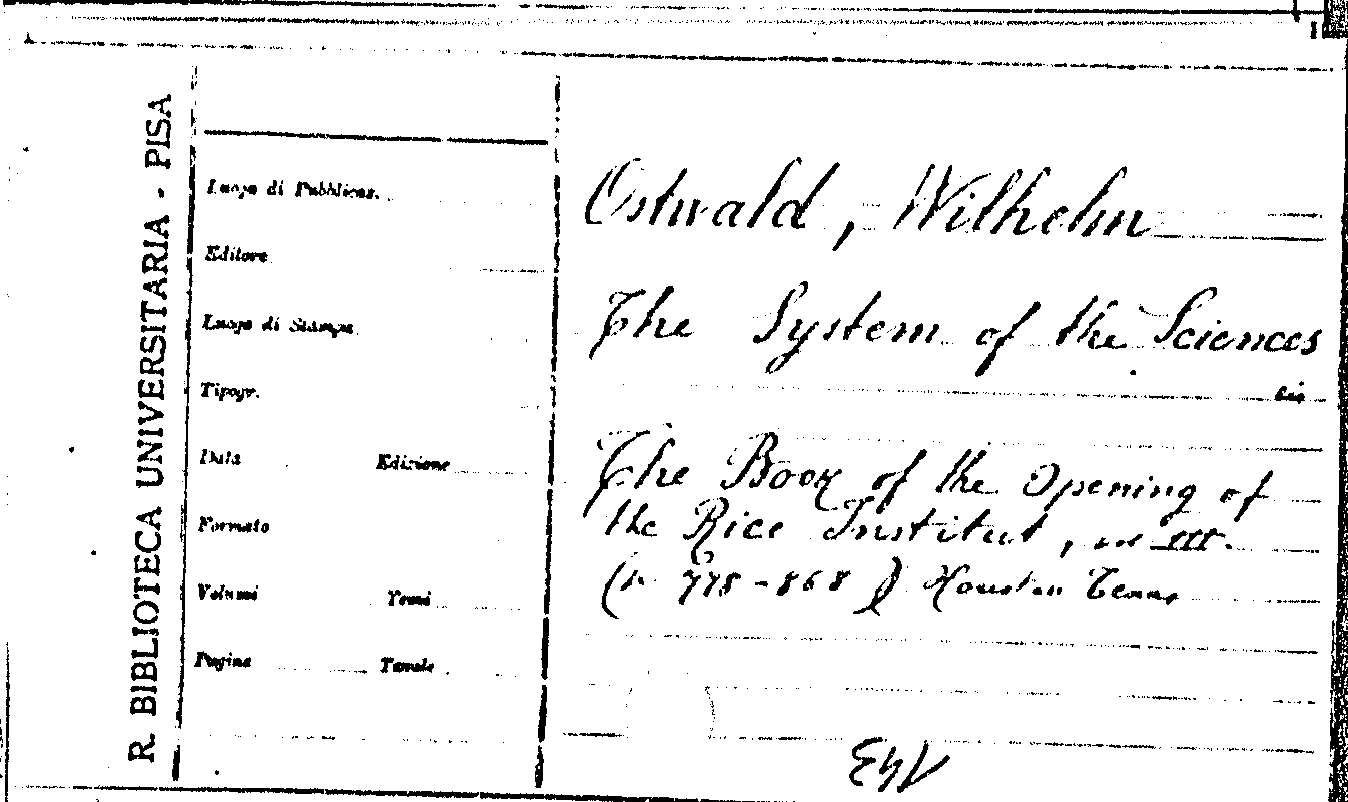 R. BIBLIOTECA UNIVERSITARIA - PISA
Luogo di Pubblicaz.
Editore
Luogo di Stampa
Tipogr.
Data Edizione
Formato
Volumi Tomi
Pagine Tavole
Ostwald, Wilhelm
The System of the Sciences
in
The Book of the Opening of
the Rice Institut, vol III.
(p. 775-868) Houston Texas